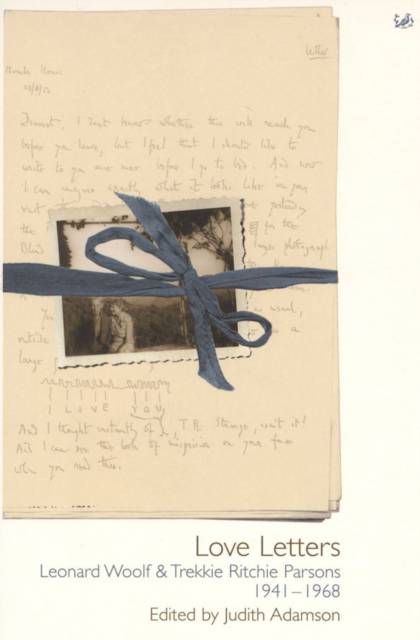 Monks House
Dearest, I don't know whether this will reach you
before you leave, but I feel that I should like to
write to you once more before I go to bed. And now
I can imagine exactly what it looks like in your
yesterday
the for the
large photograph
You
outside a
large
I LOVE YOU
And I thought instantly of T.R. Strange, isn't it!
And I can see the look of suspicion on your face
when you read this.
Love Letters
Leonard Woolf & Trekkie Ritchie Parsons
1941–1968
Edited by Judith Adamson